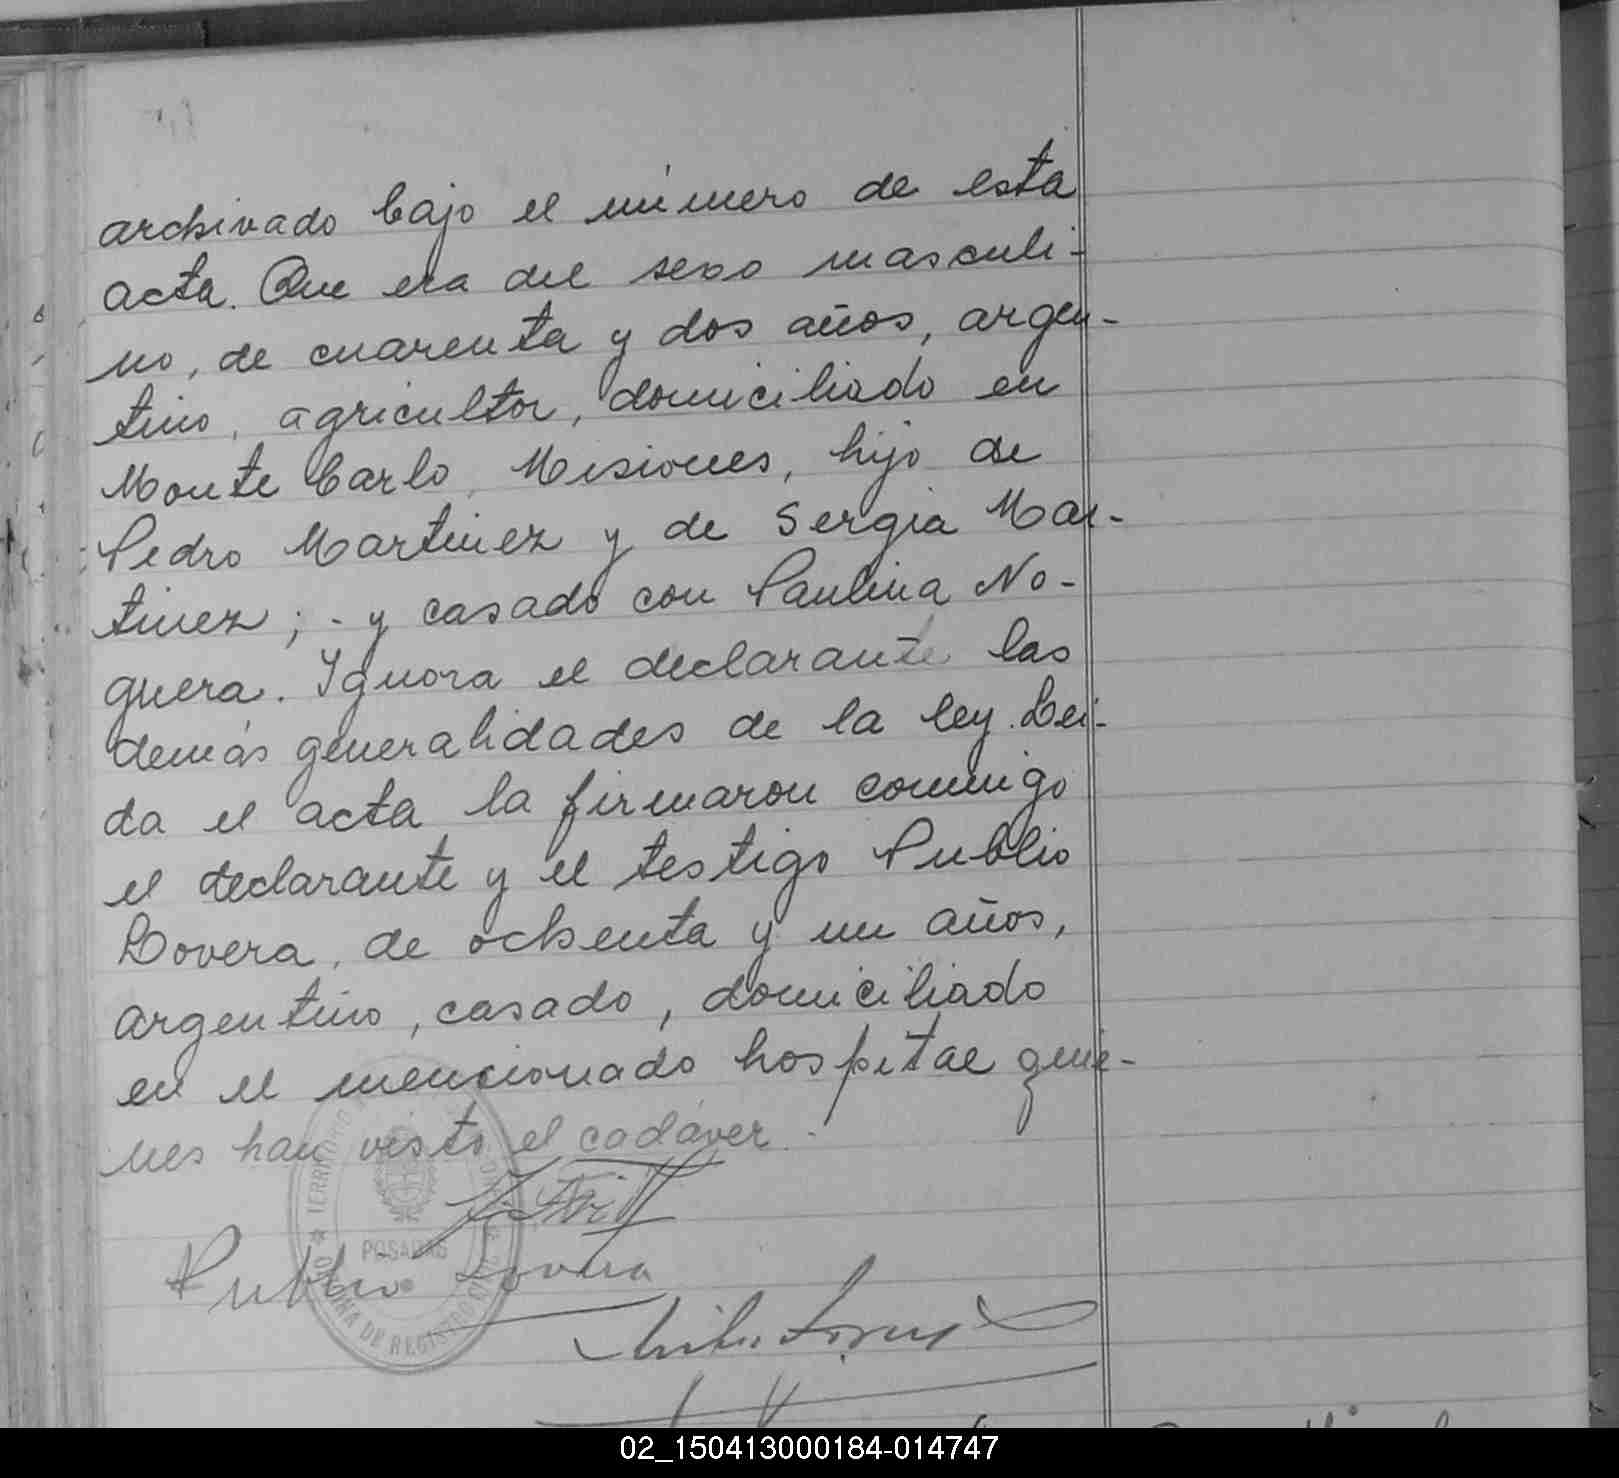 archivado bajo el número de esta
acta. Que era del sexo masculi-
no, de cuarenta y dos años, argen-
tino, agricultor, domiciliado en
Monte Carlo, Misiones, hijo de
Pedro Martinez y de Sergia Mar-
tinez; - y casado con Paulina No-
guera. Ignora el declarante las
demás generalidades de la ley. Lei-
da el acta la firmaron conmigo
el declarante y el testigo Publio
Lovera, de ochenta y un años,
argentino, casado, domiciliado
en el mencionado hospital quie-
nes han visto el cadáver.
TERRITORIO
POSADAS
DE REGISTRO CIVIL
Publio Lovera
02_150413000184-014747